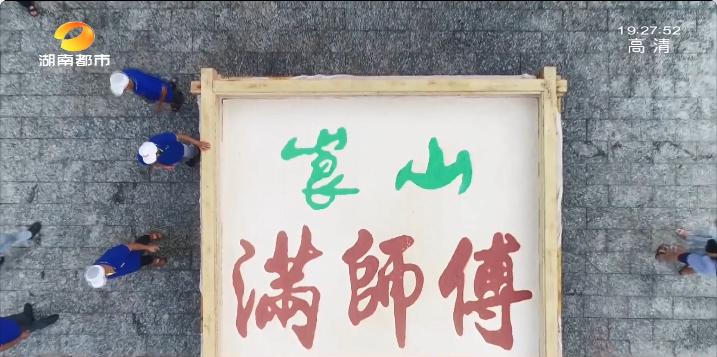 湖南都市
19:27:52
高清
崀山
滿師傅